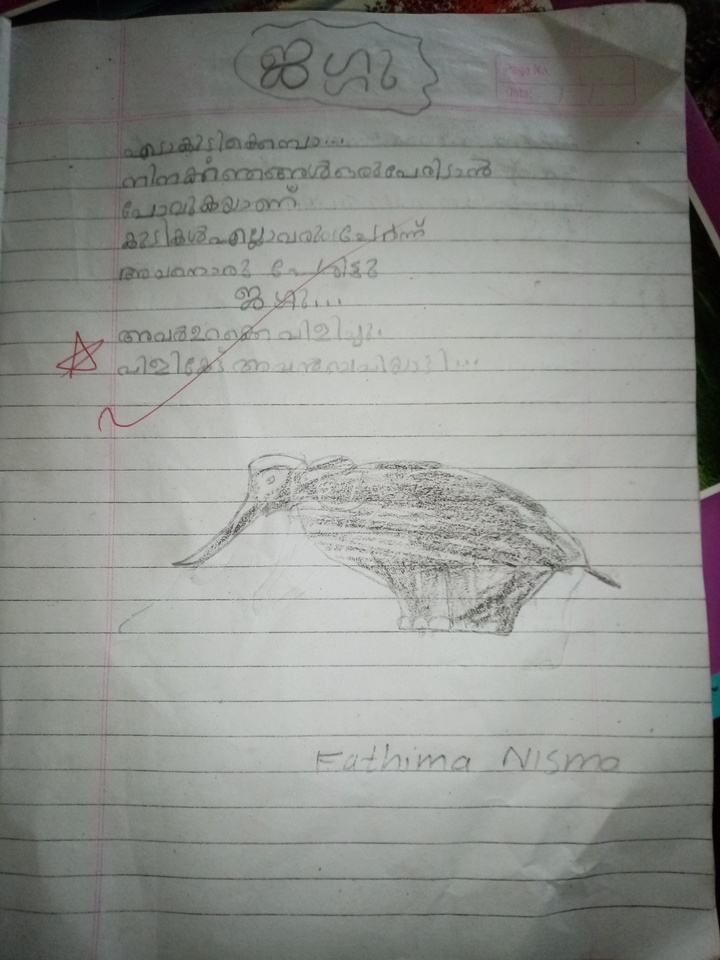 ജഗ്ഗു
Page No.
Date: / /
എടാകുട്ടിക്കൊമ്പാ...
നിനക്ക് ഞങ്ങൾ ഒരു പേരിടാൻ
പോവുകയാണ്
കുട്ടികൾ എല്ലാവരും ചേർന്ന്
അവനൊരു പേരിട്ടു
ജഗ്ഗു...
അവർ ഉറക്കെ വിളിച്ചു.
വിളികേട്ട് അവൻ
Fathima Nisma